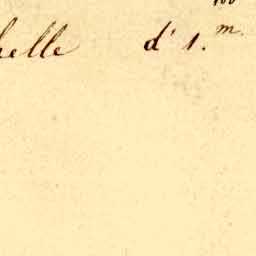 helle d' 1.m.